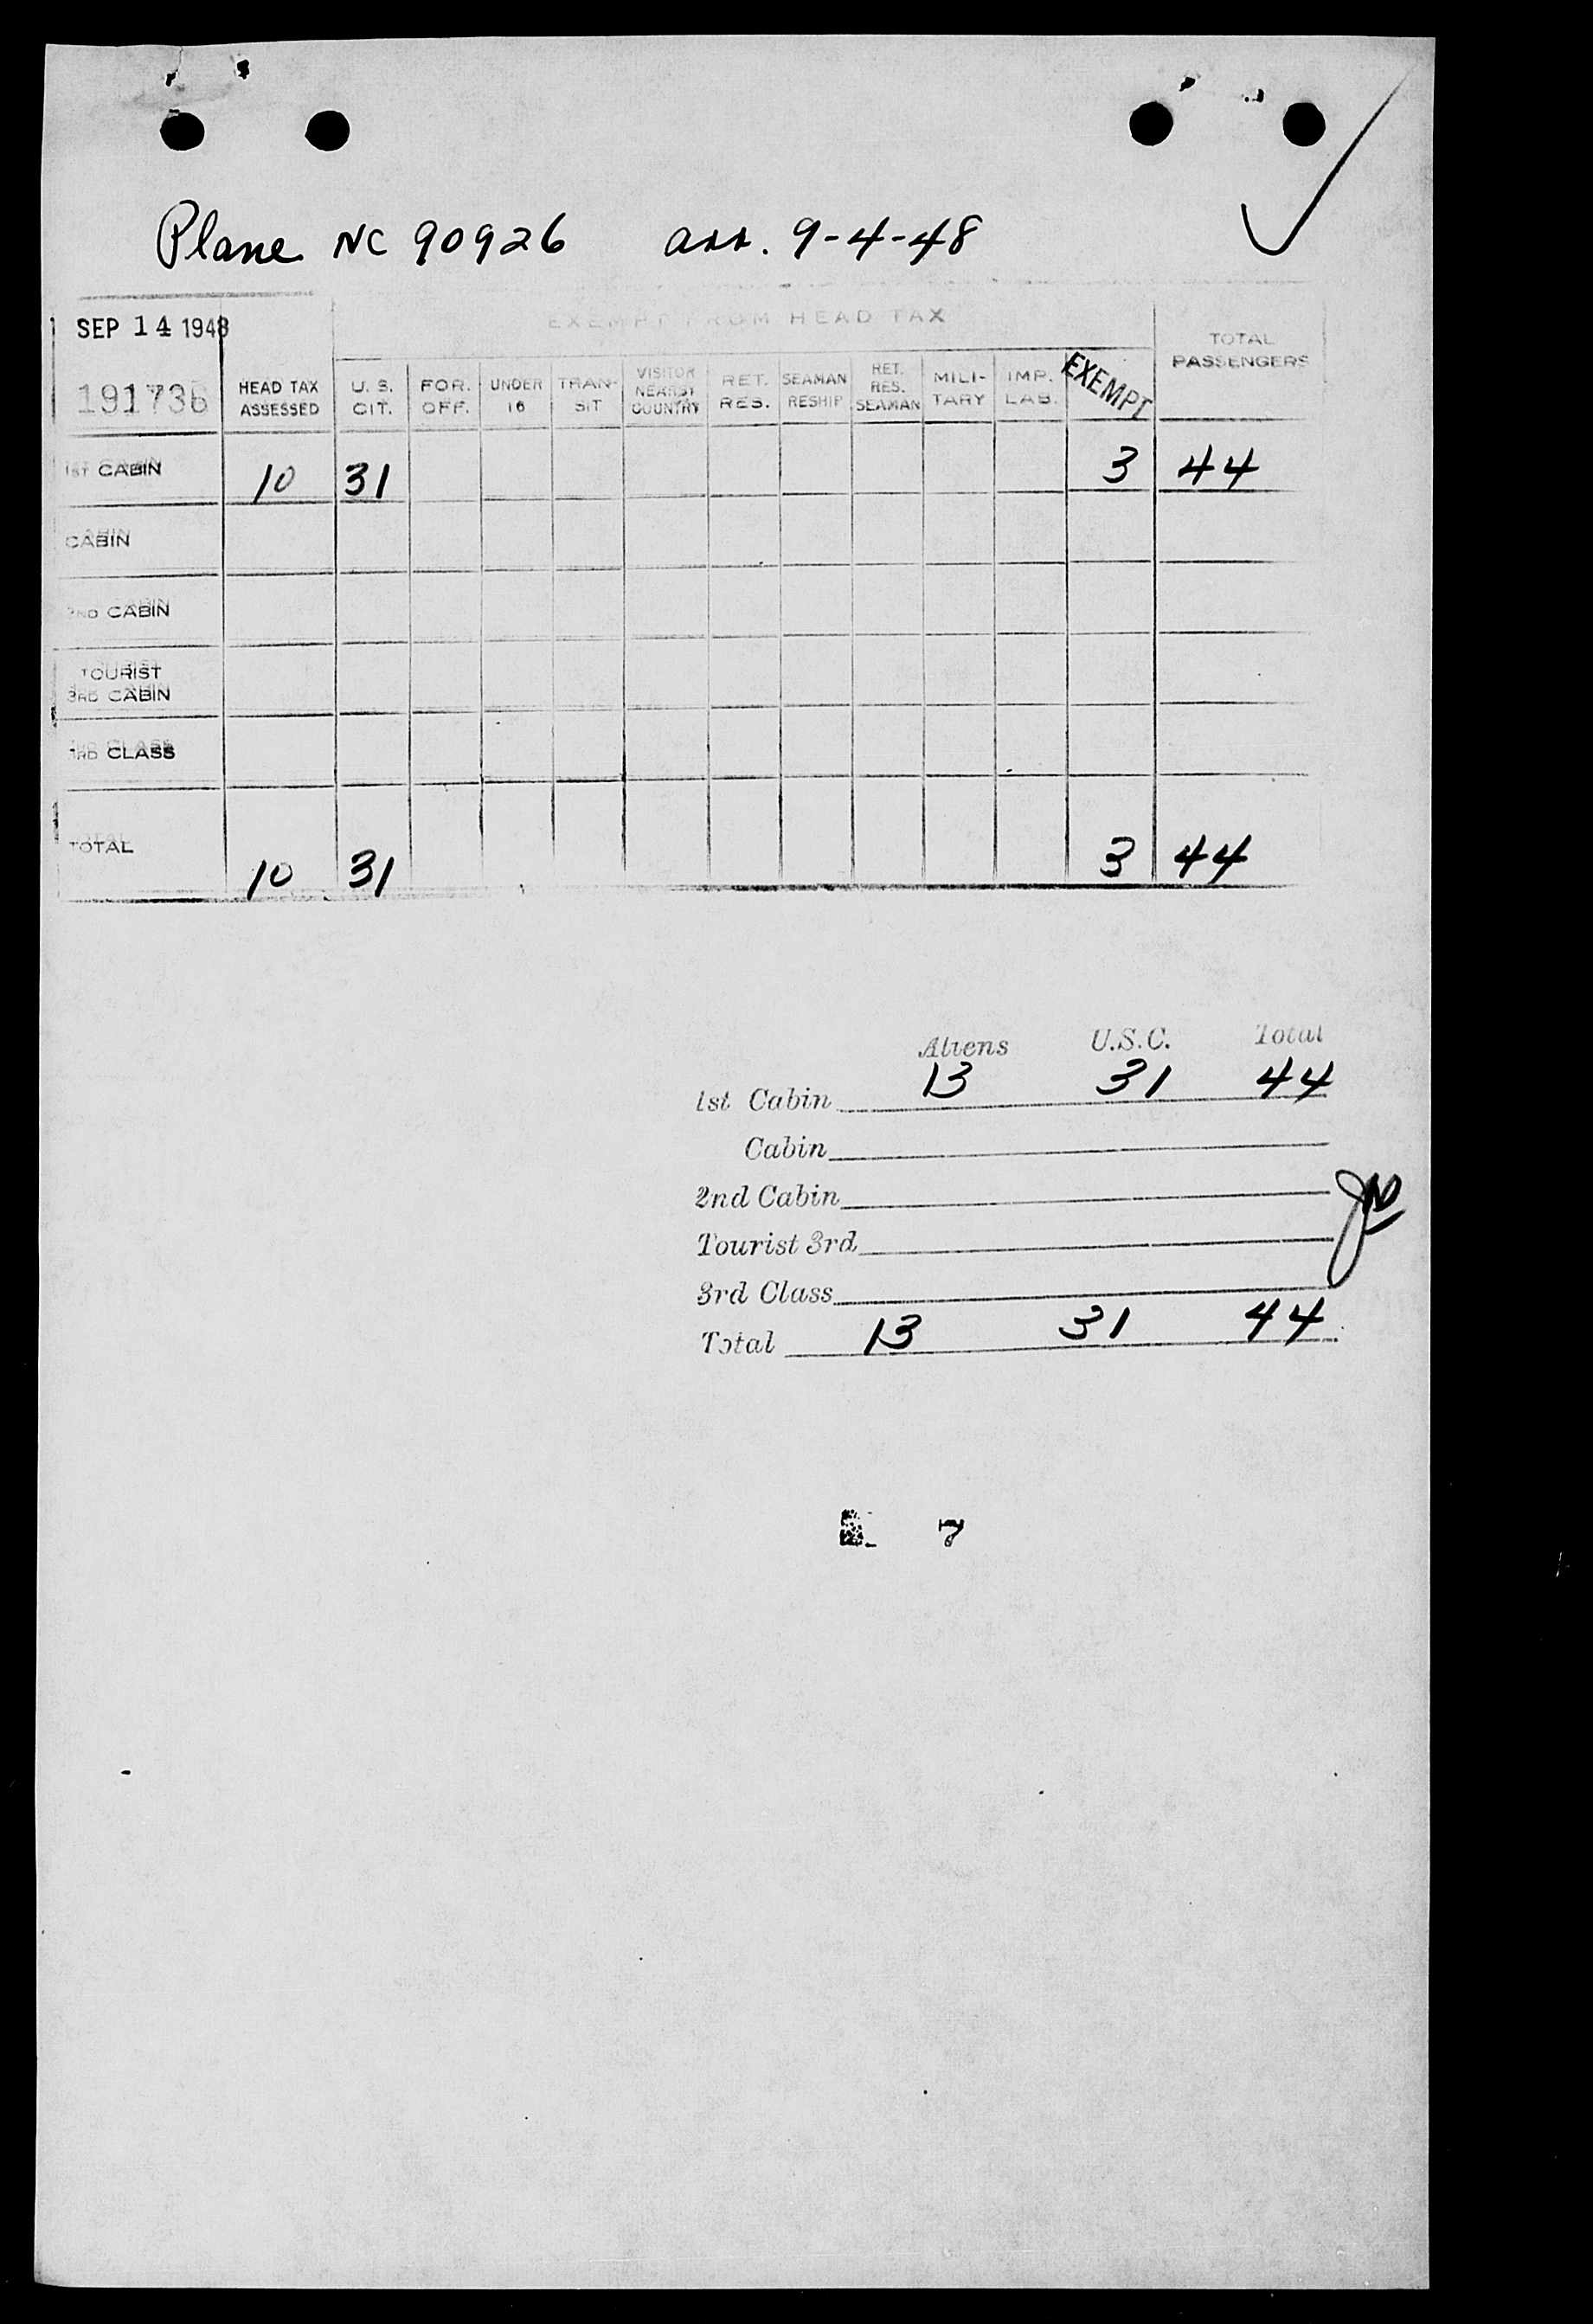 Plane NC 90926 arr. 9-4-48
SEP 14 1948
EXEMPT FROM HEAD TAX
HEAD TAX ASSESSED U. S. CIT. FOR. OFF. UNDER 16 TRAN- SIT VISITOR NEARBY COUNTRY RET. RES. SEAMAN RESHIP. RET. RES. SEAMAN MILI- TARY IMP. LAB. EXEMPT TOTAL PASSENGERS
1ST CABIN 10 31 3 44
CABIN
2ND CABIN
TOURIST
3RD CABIN
3RD CLASS
TOTAL 10 31 3 44
Aliens U.S.C. Total
1st Cabin 13 31 44
Cabin
2nd Cabin
Tourist 3rd
3rd Class
Total 13 31 44
7